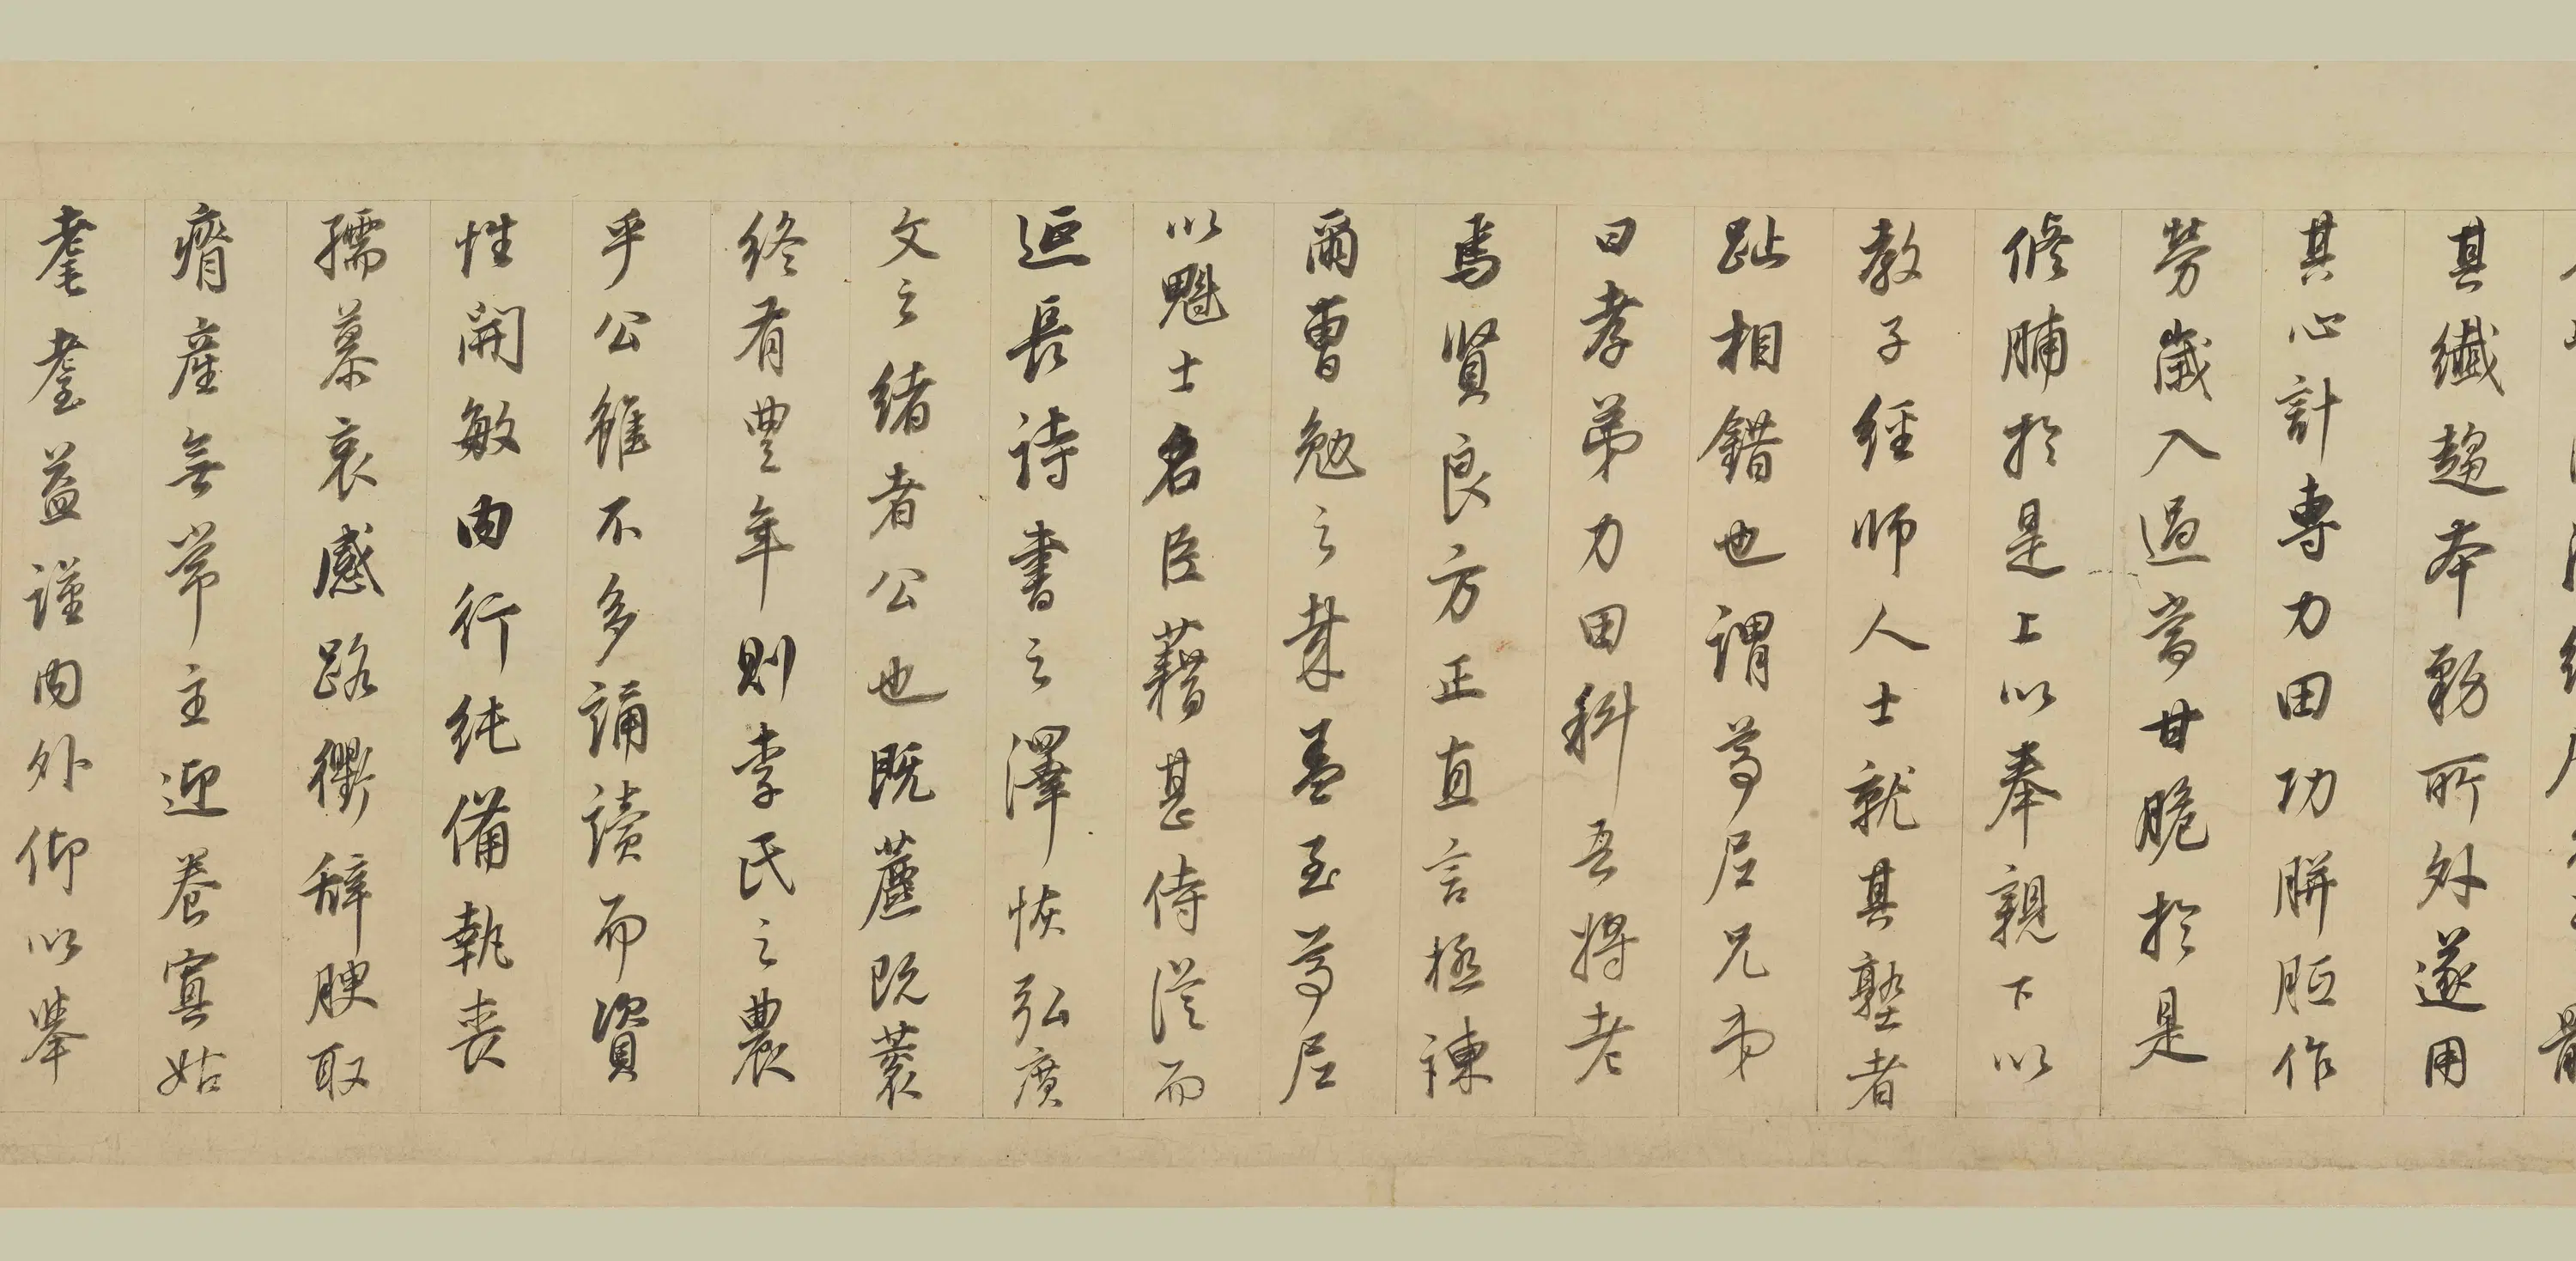 其纖趨本務所外遂用
其心計專力田功胼胝作
勞歲入過當甘脆於是
脩脯於是上以奉親下以
教子經師人士就其塾者
趾相錯也謂尊屈兄弟
曰孝弟力田科吾將老
焉賢良方正直言極諫
爾曹勉之業蓋至尊屈
以魁士名臣藉甚侍從而
逗長詩書之澤恢弘廣
文之緒者公也既藨既蓘
終有豐年則李氏之農
乎公雖不多誦讀而資
性開敏內行純備執喪
孺慕哀感路衢辭腴取
瘠產無常主迎養寡姑
耄耋益謹內外仰以舉